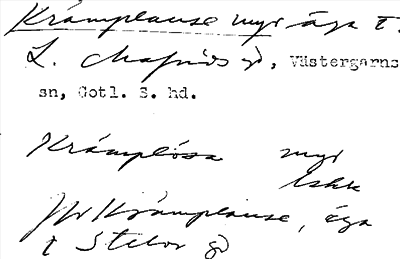 Krämplause myr äga t.
L. Mafrids gd, Västergarns
sn, Gotl. S. hd.
Krämplösa myr
Jfr Krämplause, äga
t Stelor gd